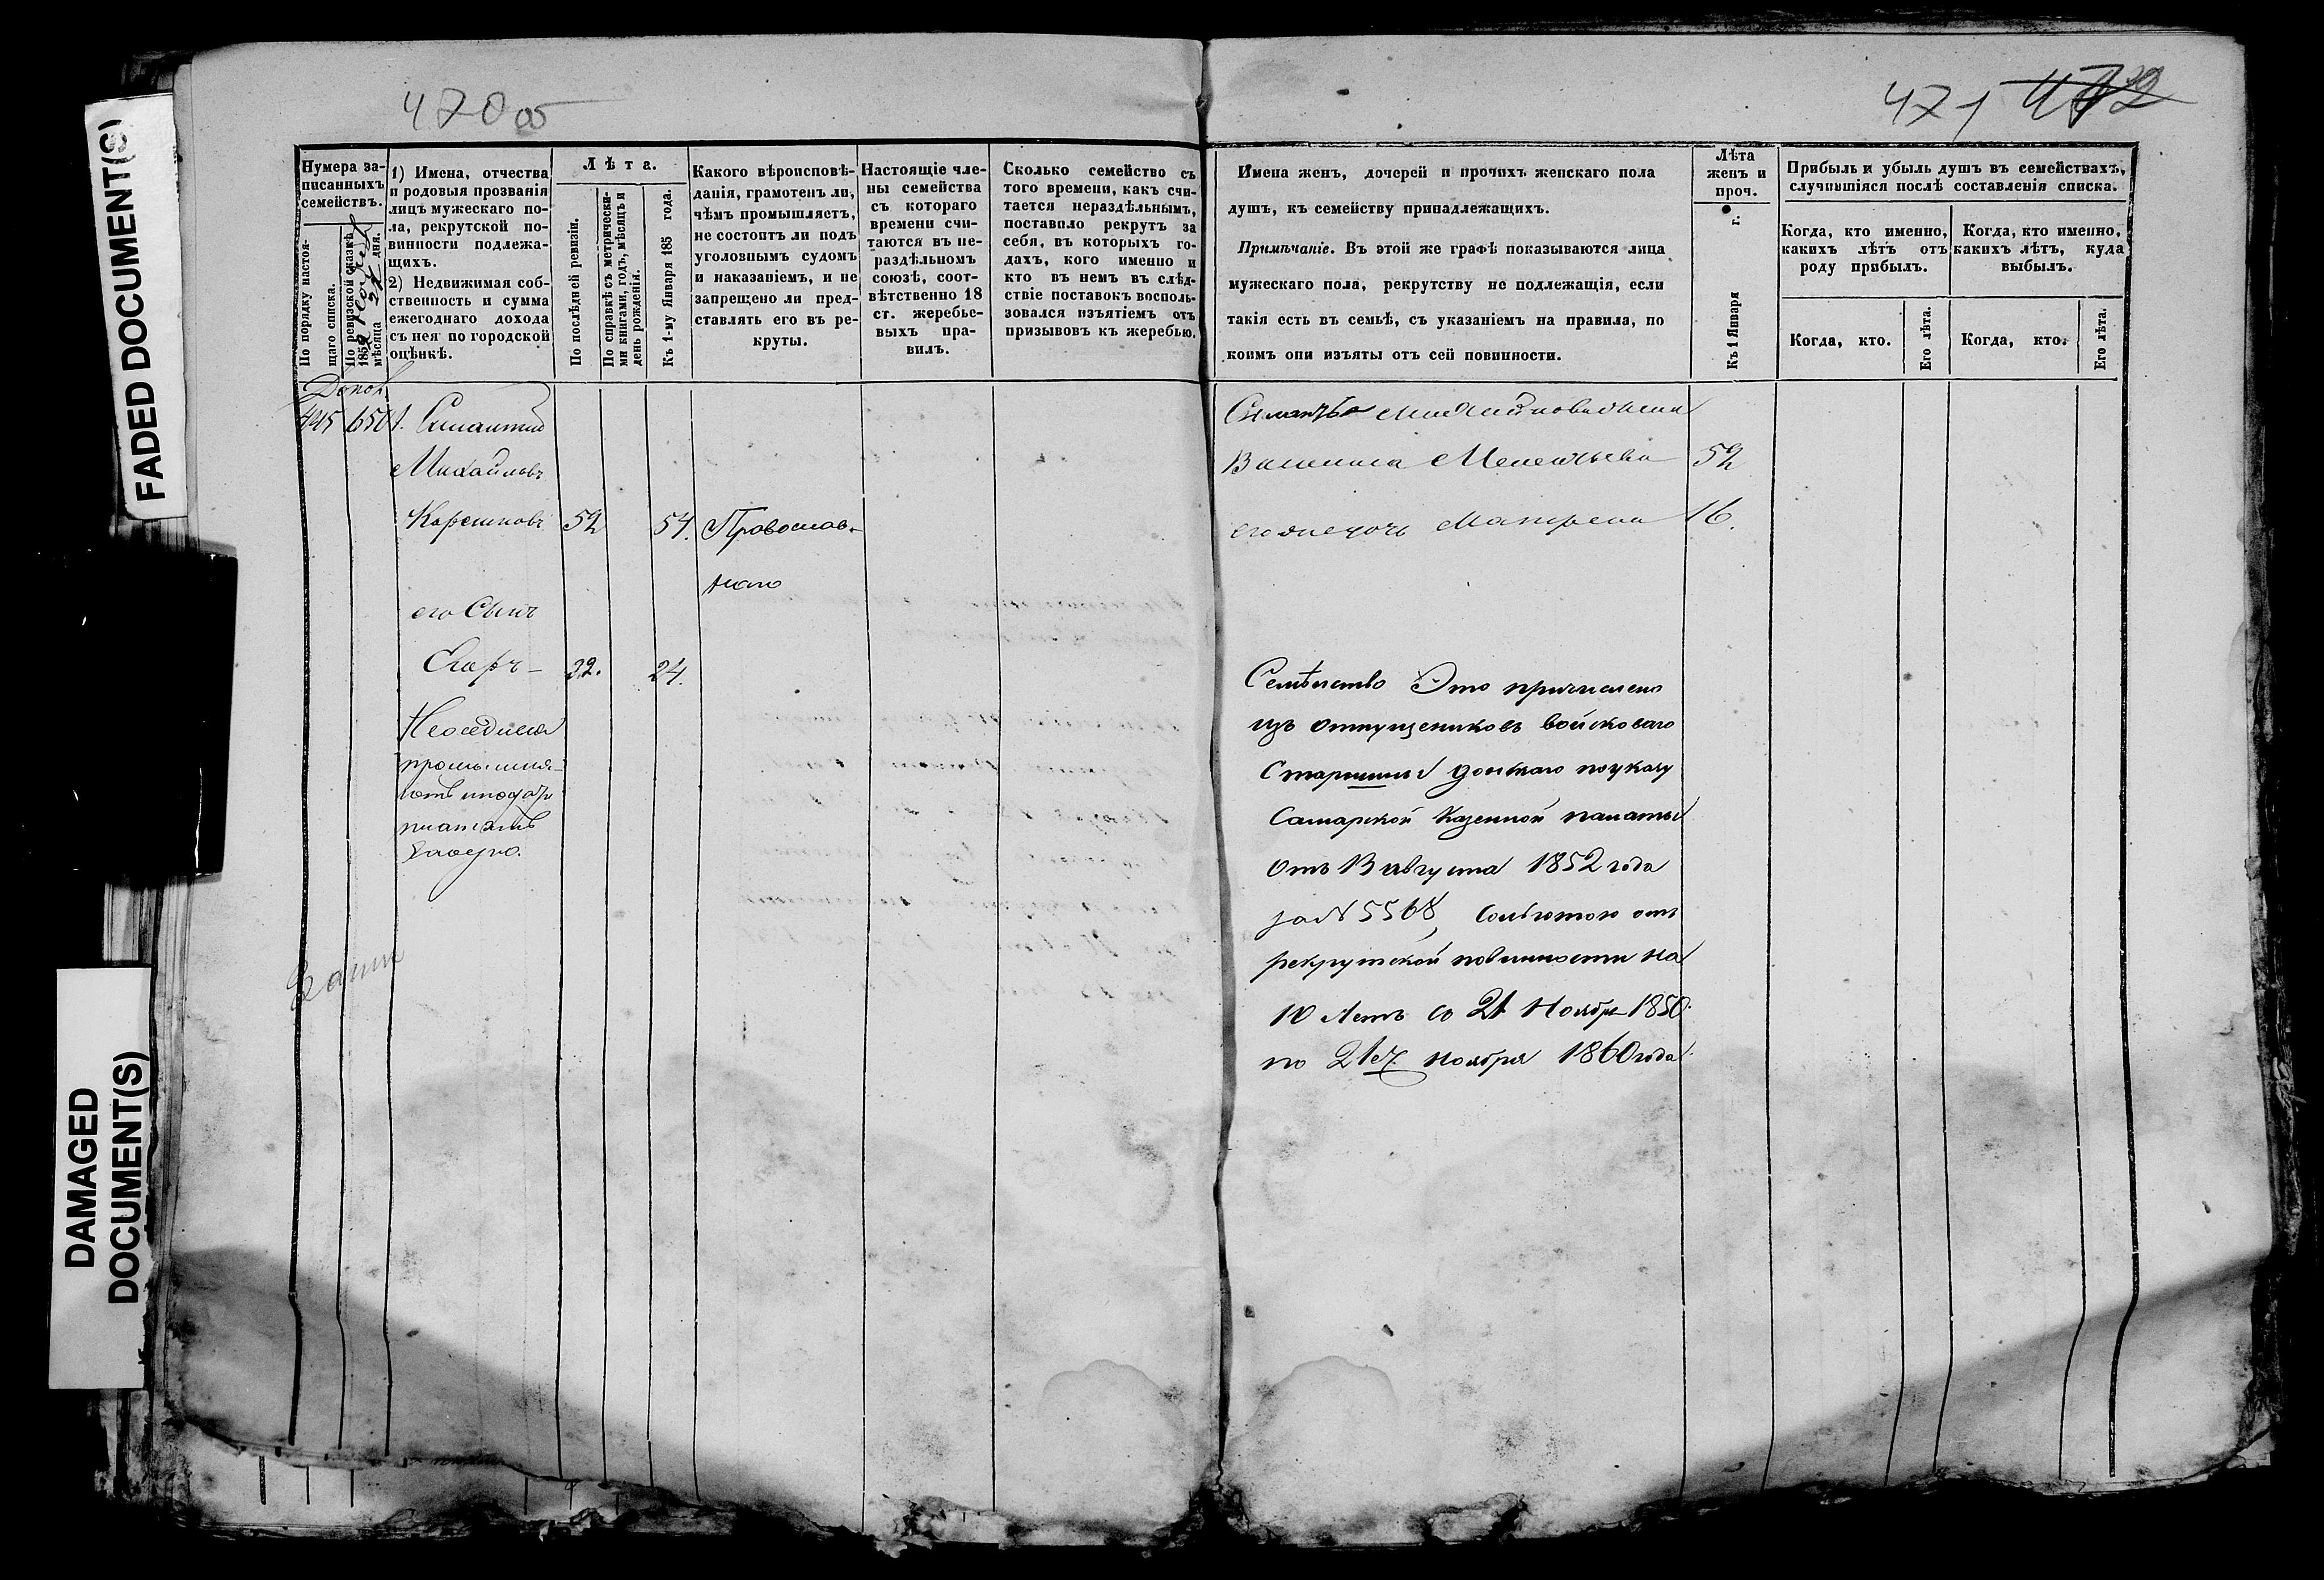 FADED DOCUMENT(S)
DAMAGED
DOCUMENT(S)
470 об
471 472
Нумера за-
писанныхъ
семействъ.
По порядку настоя-
щаго списка.
По ревизской сказкѣ
185
мѣсяца дня.
1) Имена, отчества
и родовыя прозванія
лицъ мужескаго по-
ла, рекрутской по-
винности подлежа-
щихъ.
2) Недвижимая соб-
ственность и сумма
ежегоднаго дохода
съ нея по городской
оцѣнкѣ.
Лѣта.
По послѣдней ревизіи.
По справкѣ съ метрически-
ми книгами, годъ, мѣсяцъ и
день рожденія.
Къ 1-му Января 185 года.
Какого вѣроисповѣ-
данія, грамотенъ ли,
чѣмъ промышляетъ,
не состоитъ ли подъ
уголовнымъ судомъ
и наказаніемъ, и не
запрещено ли пред-
ставлять его въ ре-
круты.
Настоящіе чле-
ны семейства
съ котораго
времени счи-
таются въ не-
раздѣльномъ
союзѣ, соот-
вѣтственно 18
ст. жеребье-
выхъ пра-
вилъ.
Сколько семейство съ
того времени, какъ счи-
тается нераздѣльнымъ,
поставило рекрутъ за
себя, въ которыхъ го-
дахъ, кого именно и
кто въ немъ въ слѣд-
ствіе поставокъ восполь-
зовался изъятіемъ отъ
призывовъ къ жеребью.
Имена женъ, дочерей и прочихъ женскаго пола
душъ, къ семейству принадлежащихъ.
Примѣчаніе. Въ этой же графѣ показываются лица
мужескаго пола, рекрутству не подлежащія, если
такія есть въ семьѣ, съ указаніемъ на правила, по
коимъ они изъяты отъ сей повинности.
Лѣта
женъ и
проч.
Къ 1 Января г.
Прибыль и убыль душъ въ семействахъ,
случившіяся послѣ составленія списка.
Когда, кто именно,
какихъ лѣтъ отъ
роду прибылъ.
Когда, кто именно,
какихъ лѣтъ, куда
выбылъ.
Когда, кто.
Его лѣта.
Когда, кто.
Его лѣта.
Допол
445 650 1.
Михайловъ
52 54. Православ-
наго
его Сынъ
Егоръ 22. 24.
Михайлова жена
Василиса 52
его же дочь Матрена 16.
Семѣйство Это причислено
изъ отпущениковъ войсковаго
Старшины Донскаго по указу
Самарской Казенной палаты
отъ 13 августа 1852 года
за № 5568, со льготою отъ
рекрутской повинности на
10 летъ со 21 Ноября 1850
по 21е ноября 1860 года